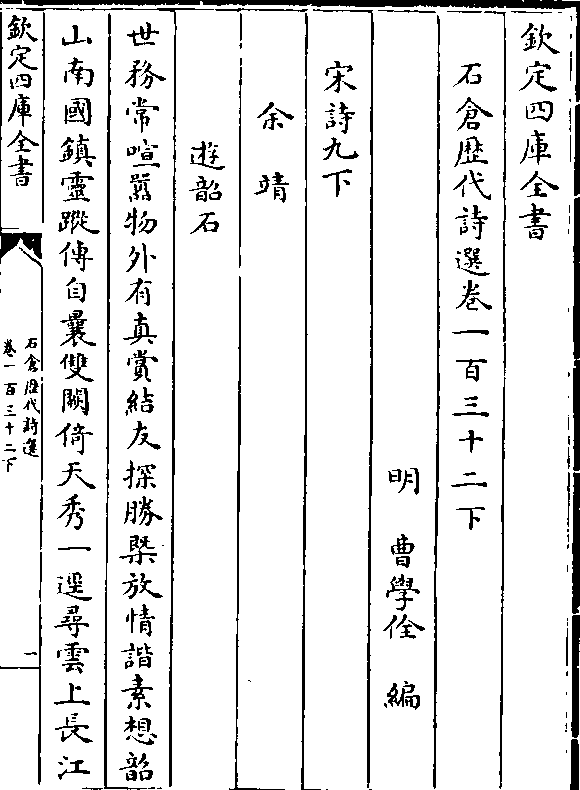 欽定四庫全書
石倉歴代詩選卷一百三十二下
明 曹學佺 編
宋詩九下
余靖
遊韶石
世務常喧囂物外有真賞結友探勝槩放情諧素想韶
山南國鎮靈蹤傳自曩雙闕倚天秀一逕尋雲上長江
欽定四庫全書
石倉歴代詩選
卷一百三十二下
一